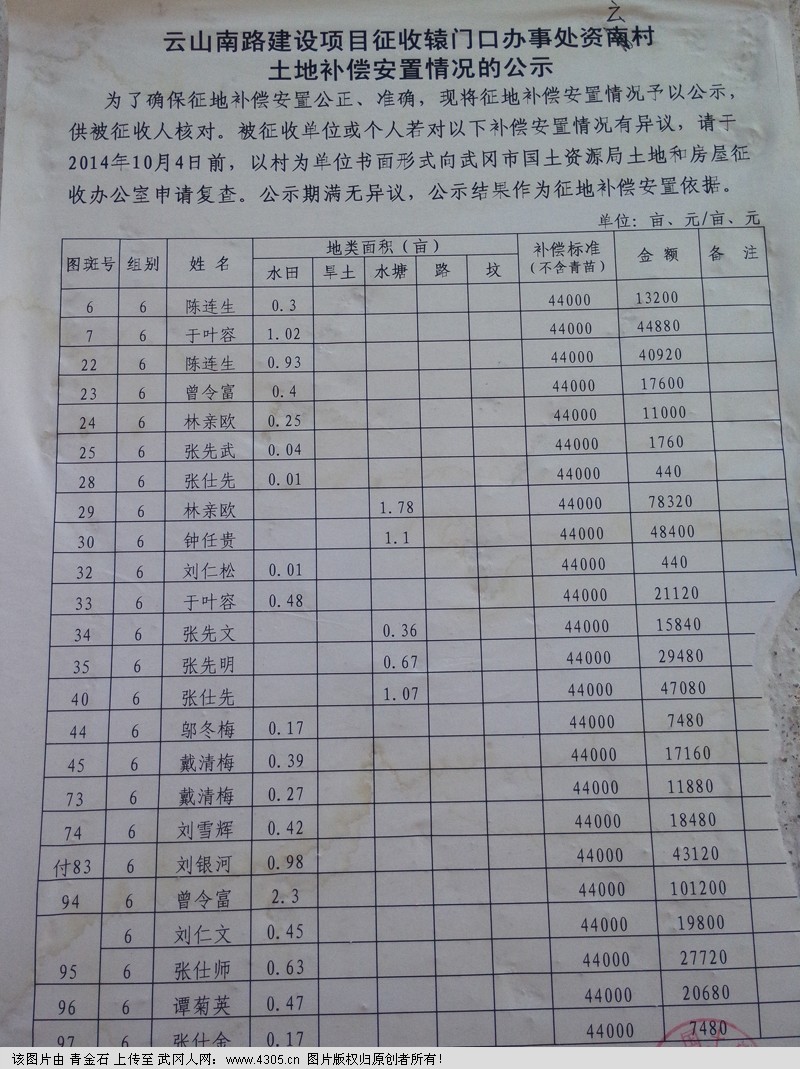 云
云山南路建设项目征收辕门口办事处资南村
土地补偿安置情况的公示
为了确保征地补偿安置公正、准确，现将征地补偿安置情况予以公示，
供被征收人核对。被征收单位或个人若对以下补偿安置情况有异议，请于
2014年10月4日前，以村为单位书面形式向武冈市国土资源局土地和房屋征
收办公室申请复查。公示期满无异议，公示结果作为征地补偿安置依据。
单位：亩、元/亩、元
图斑号 组别 姓名 地类面积（亩） 补偿标准 金额 备注
水田 旱土 水塘 路 坟 （不含青苗）
6 6 陈连生 0.3 44000 13200
7 6 于叶容 1.02 44000 44880
22 6 陈连生 0.93 44000 40920
23 6 曾令富 0.4 44000 17600
24 6 林亲欧 0.25 44000 11000
25 6 张先武 0.04 44000 1760
28 6 张仕先 0.01 44000 440
29 6 林亲欧 1.78 44000 78320
30 6 钟任贵 1.1 44000 48400
32 6 刘仁松 0.01 44000 440
33 6 于叶容 0.48 44000 21120
34 6 张先文 0.36 44000 15840
35 6 张先明 0.67 44000 29480
40 6 张仕先 1.07 44000 47080
44 6 邬冬梅 0.17 44000 7480
45 6 戴清梅 0.39 44000 17160
73 6 戴清梅 0.27 44000 11880
74 6 刘雪辉 0.42 44000 18480
付83 6 刘银河 0.98 44000 43120
94 6 曾令富 2.3 44000 101200
6 刘仁文 0.45 44000 19800
95 6 张仕师 0.63 44000 27720
96 6 谭菊英 0.47 44000 20680
97 6 张仕金 0.17 44000 7480
该图片由 青金石 上传至 武冈人网：www.4305.cn 图片版权归原创者所有！